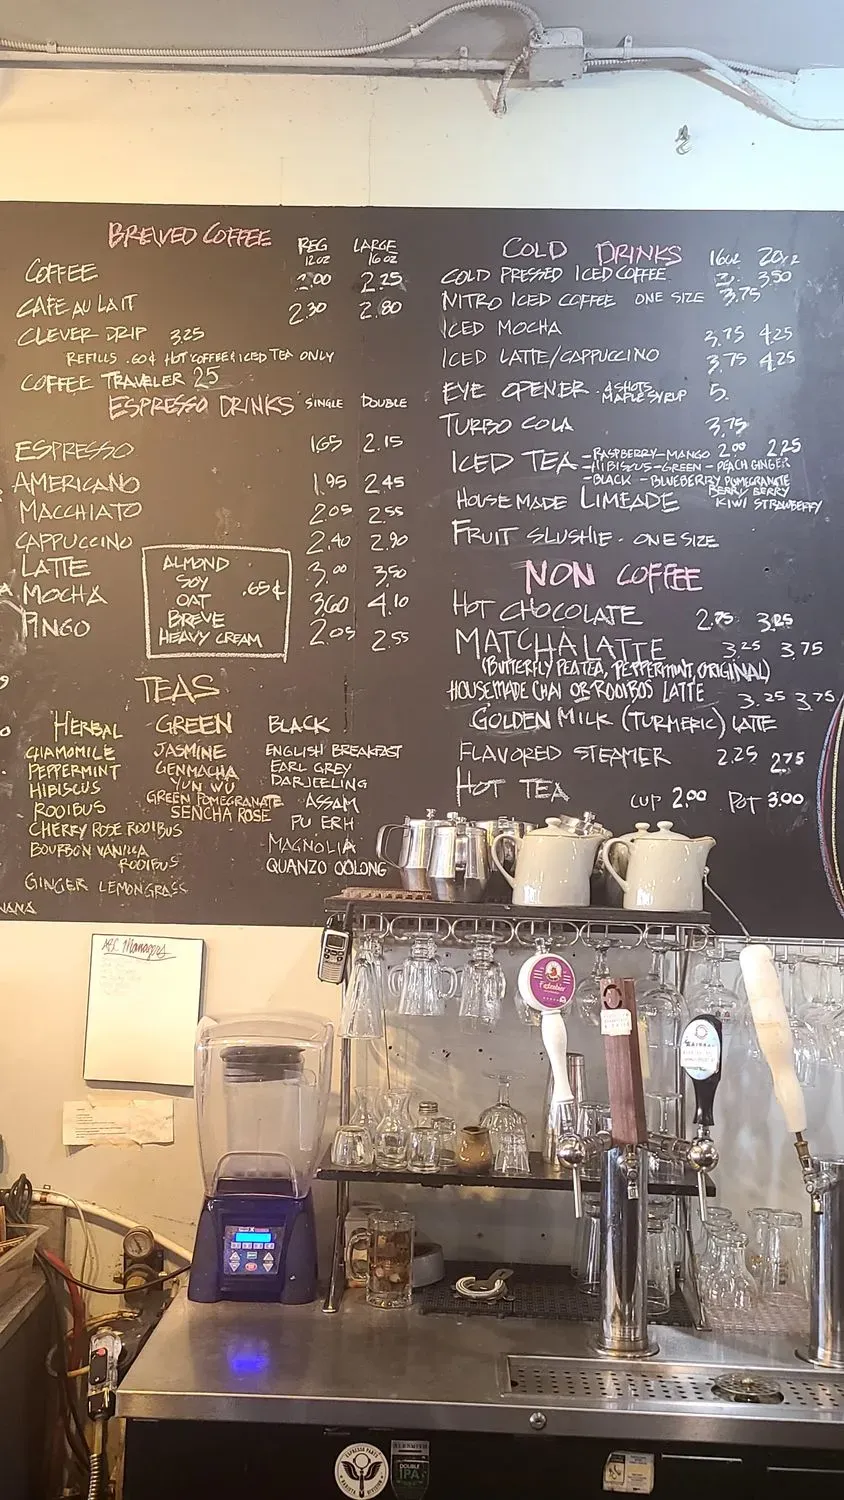 BREWED COFFEE REG LARGE
12oz 16oz
COFFEE 2.00 2.25
CAFE AU LAIT 2.30 2.80
CLEVER DRIP 325
REFILLS .60¢ HOT COFFEE & ICED TEA ONLY
COFFEE TRAVELER 25
ESPRESSO DRINKS SINGLE DOUBLE
ESPRESSO 165 2.15
AMERICANO 1.95 2.45
MACCHIATO 2.05 2.55
CAPPUCCINO 2.40 2.90
LATTE 3.00 3.50
MOCHA 360 4.10
PINGO 2.05 2.55
ALMOND
SOY
OAT .65¢
BREVE
HEAVY CREAM
TEAS
HERBAL
CHAMOMILE
PEPPERMINT
HIBISCUS
ROOIBUS
CHERRY ROSE ROOIBUS
BOURBON VANILLA
ROOIBUS
GINGER LEMONGRASS
GREEN
JASMINE
GENMACHA
YUN WU
GREEN POMEGRANATE
SENCHA ROSE
BLACK
ENGLISH BREAKFAST
EARL GREY
DARJEELING
ASSAM
PU ERH
MAGNOLIA
QUANZO OOLONG
COLD DRINKS 16oz 20oz
COLD PRESSED ICED COFFEE 3. 3.50
NITRO ICED COFFEE ONE SIZE 3.75
ICED MOCHA 3.75 4.25
ICED LATTE/CAPPUCCINO 3.75 4.25
EYE OPENER 4 SHOTS 5.
MAPLE SYRUP
TURBO COLA 3.75
ICED TEA - RASPBERRY - MANGO 2.00 2.25
- HIBISCUS - GREEN - PEACH GINGER
- BLACK - BLUEBERRY POMEGRANATE
HOUSE MADE LIMEADE BERRY BERRY
KIWI STRAWBERRY
FRUIT SLUSHIE - ONE SIZE
NON COFFEE
HOT CHOCOLATE 2.75 3.25
MATCHA LATTE 3.25 3.75
(BUTTERFLY PEA TEA, PEPPERMINT, ORIGINAL)
HOUSEMADE CHAI OR ROOIBOS LATTE 3.25 3.75
GOLDEN MILK (TURMERIC) LATTE
FLAVORED STEAMER 2.25 2.75
HOT TEA CUP 2.00 POT 3.00
ABC Managers
DOUBLE
IPA